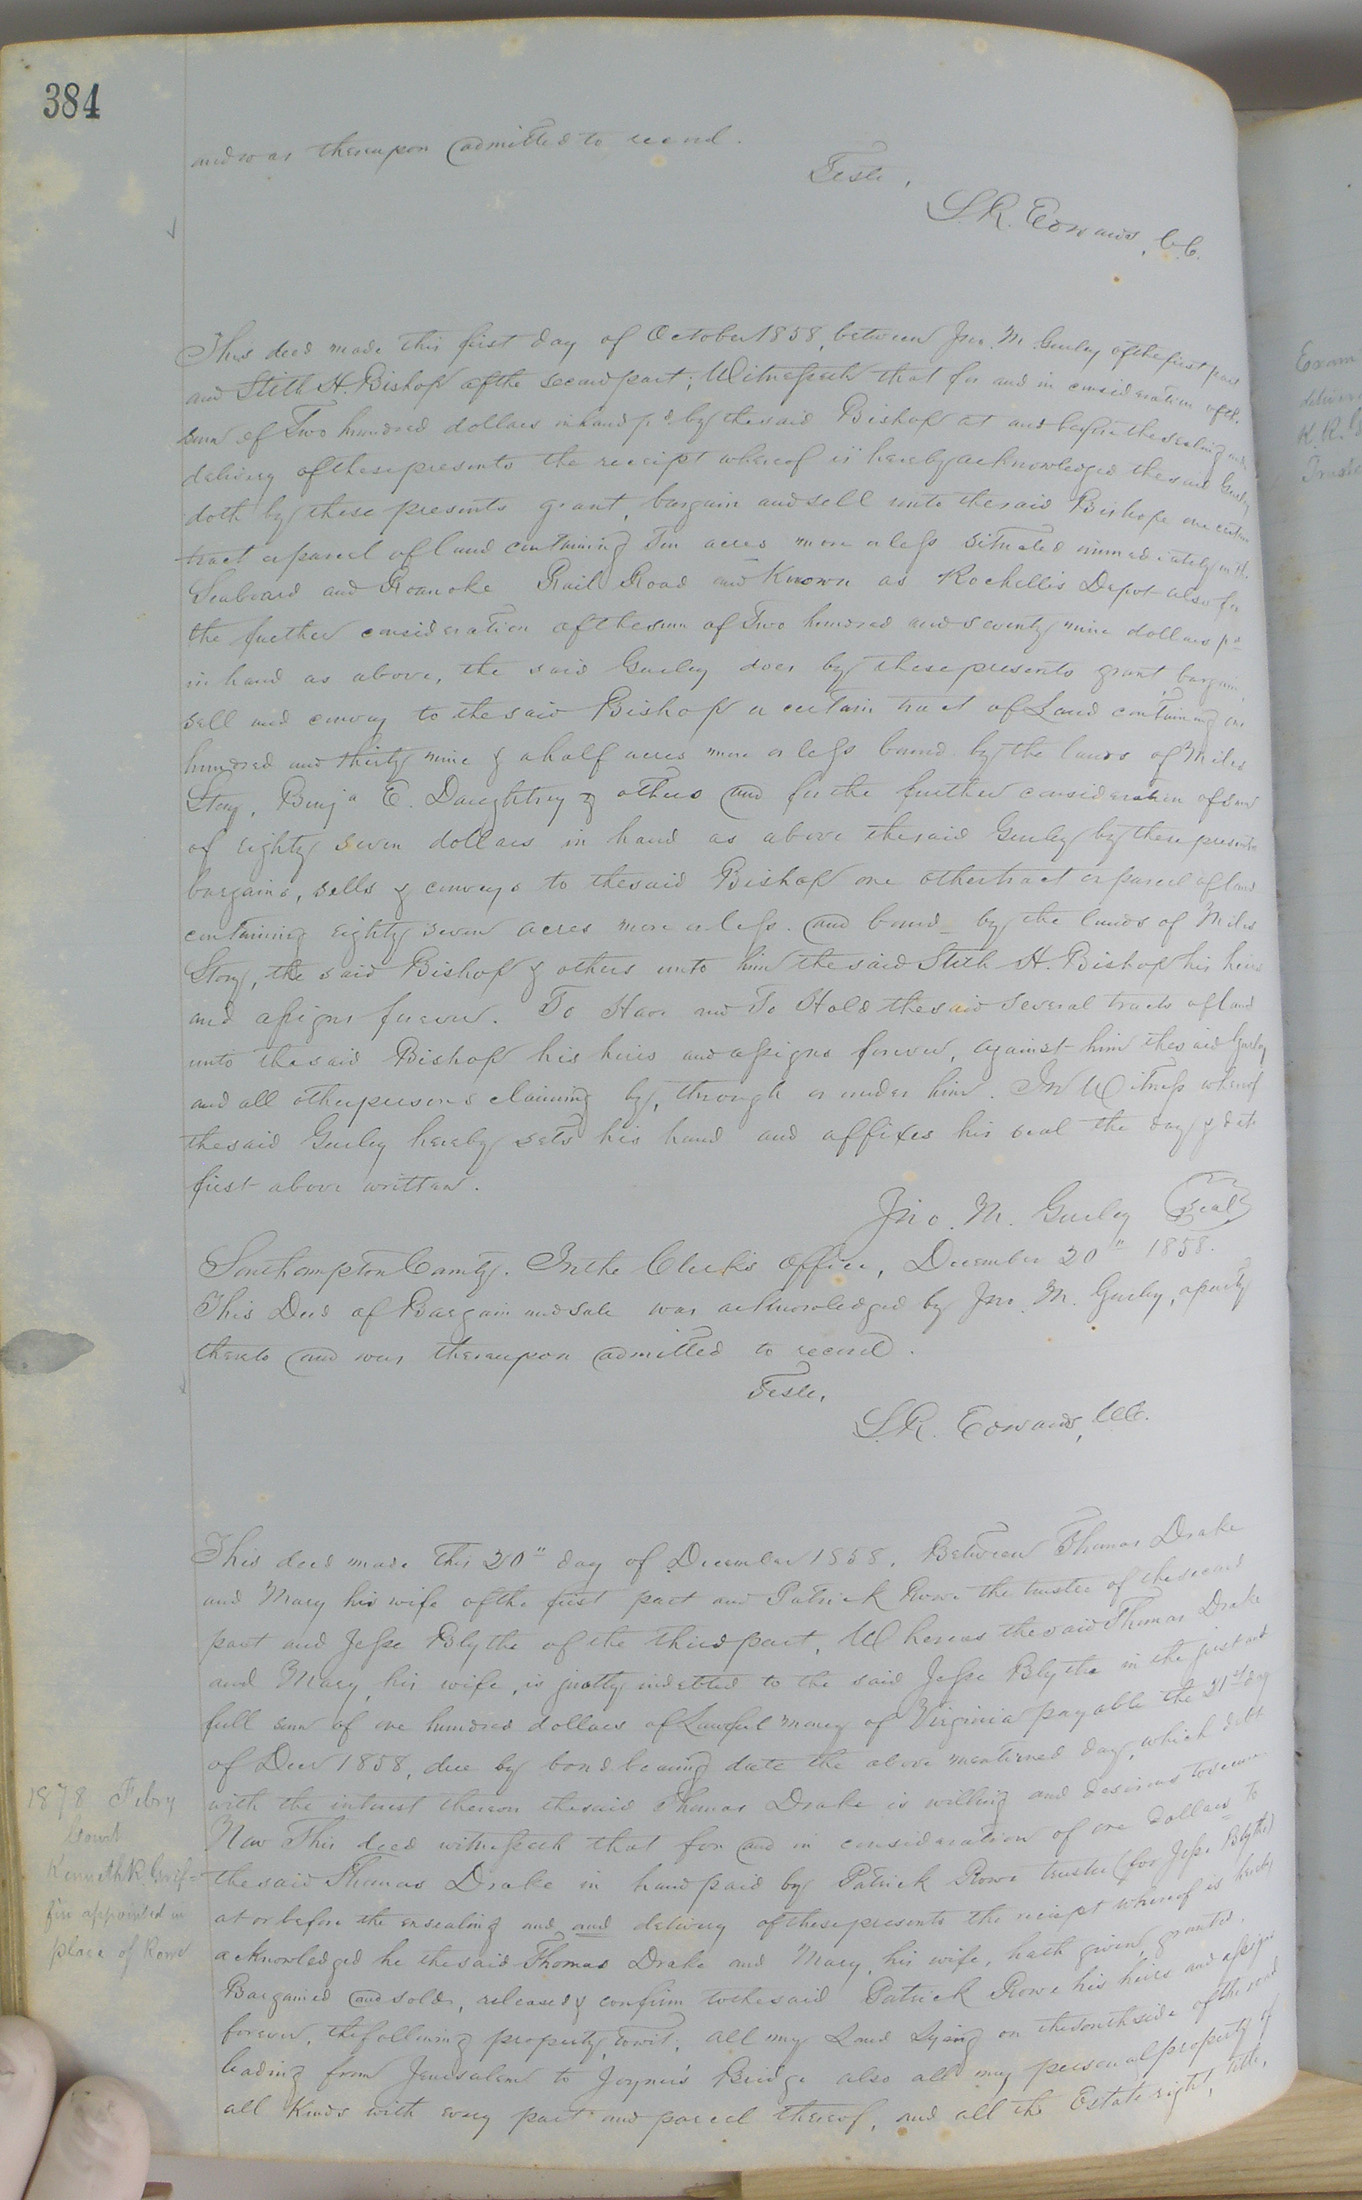 384
and was thereupon admitted to record.
Teste,
S. R. Edwards, C.C.
This deed made this first day of October 1858, between Jno. M. Gurley of the first part
and Stith H. Bishop of the second part; Witnesseth that for and in consideration of the
sum of Two hundred dollars in hand pd. by the said Bishop at and before the sealing and
delivery of these presents the receipt whereof is hereby acknowledged the said Gurley
doth by these presents grant, bargain and sell unto the said Bishop one certain
tract or parcel of land containing Ten acres more or less situated immediately on the
Seaboard and Roanoke Rail Road and Known as Rochelle's Depot also for
the further consideration of the sum of Two hundred and seventy nine dollars pd
in hand as above, the said Gurley does by these presents grant, bargain,
sell and convey to the said Bishop a certain tract of Land containing one
hundred and thirty nine & a half acres more or less bound by the lands of Miles
Story, Benja E. Daughtrey & others and for the further consideration of sum
of eighty seven dollars in hand as above the said Gurley by these presents
bargains, sells & conveys to the said Bishop one other tract or parcel of land
containing eighty seven acres more or less. and bound by the lands of Miles
Story, the said Bishop & others unto him the said Stith H. Bishop his heirs
and assigns forever. To Have and To Hold the said several tracts of land
unto the said Bishop his heirs and assigns forever, against him the said Gurley
and all other persons claiming by, through or under him. In Witness whereof
the said Gurley hereby sets his hand and affixes his seal the day & date
first above written.
Jno. M. Gurley (seal)
Southampton County. In the Clerk's Office, December 20" 1858.
This Deed of Bargain and sale was acknowledged by Jno. M. Gurley, a party
thereto and was thereupon admitted to record.
Teste,
S. R. Edwards, C.C.
This deed made this 20" day of December 1858. Between Thomas Drake
and Mary his wife of the first part and Patrick Rowe the trustee of the second
part and Jesse Blythe of the third part, Whereas the said Thomas Drake
and Mary, his wife, is justly indebted to the said Jesse Blythe in the just and
full sum of one hundred dollars of Lawful money of Virginia payable the 21st day
of Decr 1858, due by bond bearing date the above mentioned day, which debt
with the interest thereon the said Thomas Drake is willing and desirous to secure
Now This deed witnesseth that for and in consideration of one dollars to
the said Thomas Drake in hand paid by Patrick Rowe trustee (for Jesse Blythe)
at or before the ensealing and and delivery of these presents the reciept whereof is hereby
acknowledged he the said Thomas Drake and Mary, his wife, hath given, granted,
Bargained and sold, released & confirm to the said Patrick Rowe his heirs and assigns
forever, the following property, towit; all my Land Lying on the south side of the road
leading from Jerusalem to Joyner's Bridge also all my personal property of
all Kinds with every part and parcel thereof, and all the Estate right, title,
1878 Febry
Court
Kenneth R. Grif-
fin appointed in
place of Rowe
Exam
deliver
K. R. G
Truste